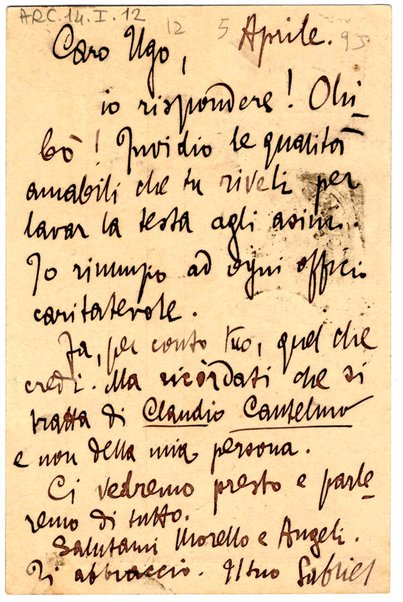 ARC.14.I.12
12 5 95
Aprile.
Caro Ugo,
io rispondere! Ohi-
bò! Invidio le qualità
amabili che tu riveli per
lavar la testa agli asini.
Io rinunzio ad ogni officio
caritatevole.
Fa, per conto tuo, quel che
credi. Ma ricòrdati che si
tratta di Claudio Cantelmo
e non della mia persona.
Ci vedremo presto e parle-
remo di tutto.
Salutami Morello e Angeli.
Ti abbraccio. Il tuo Gabriel